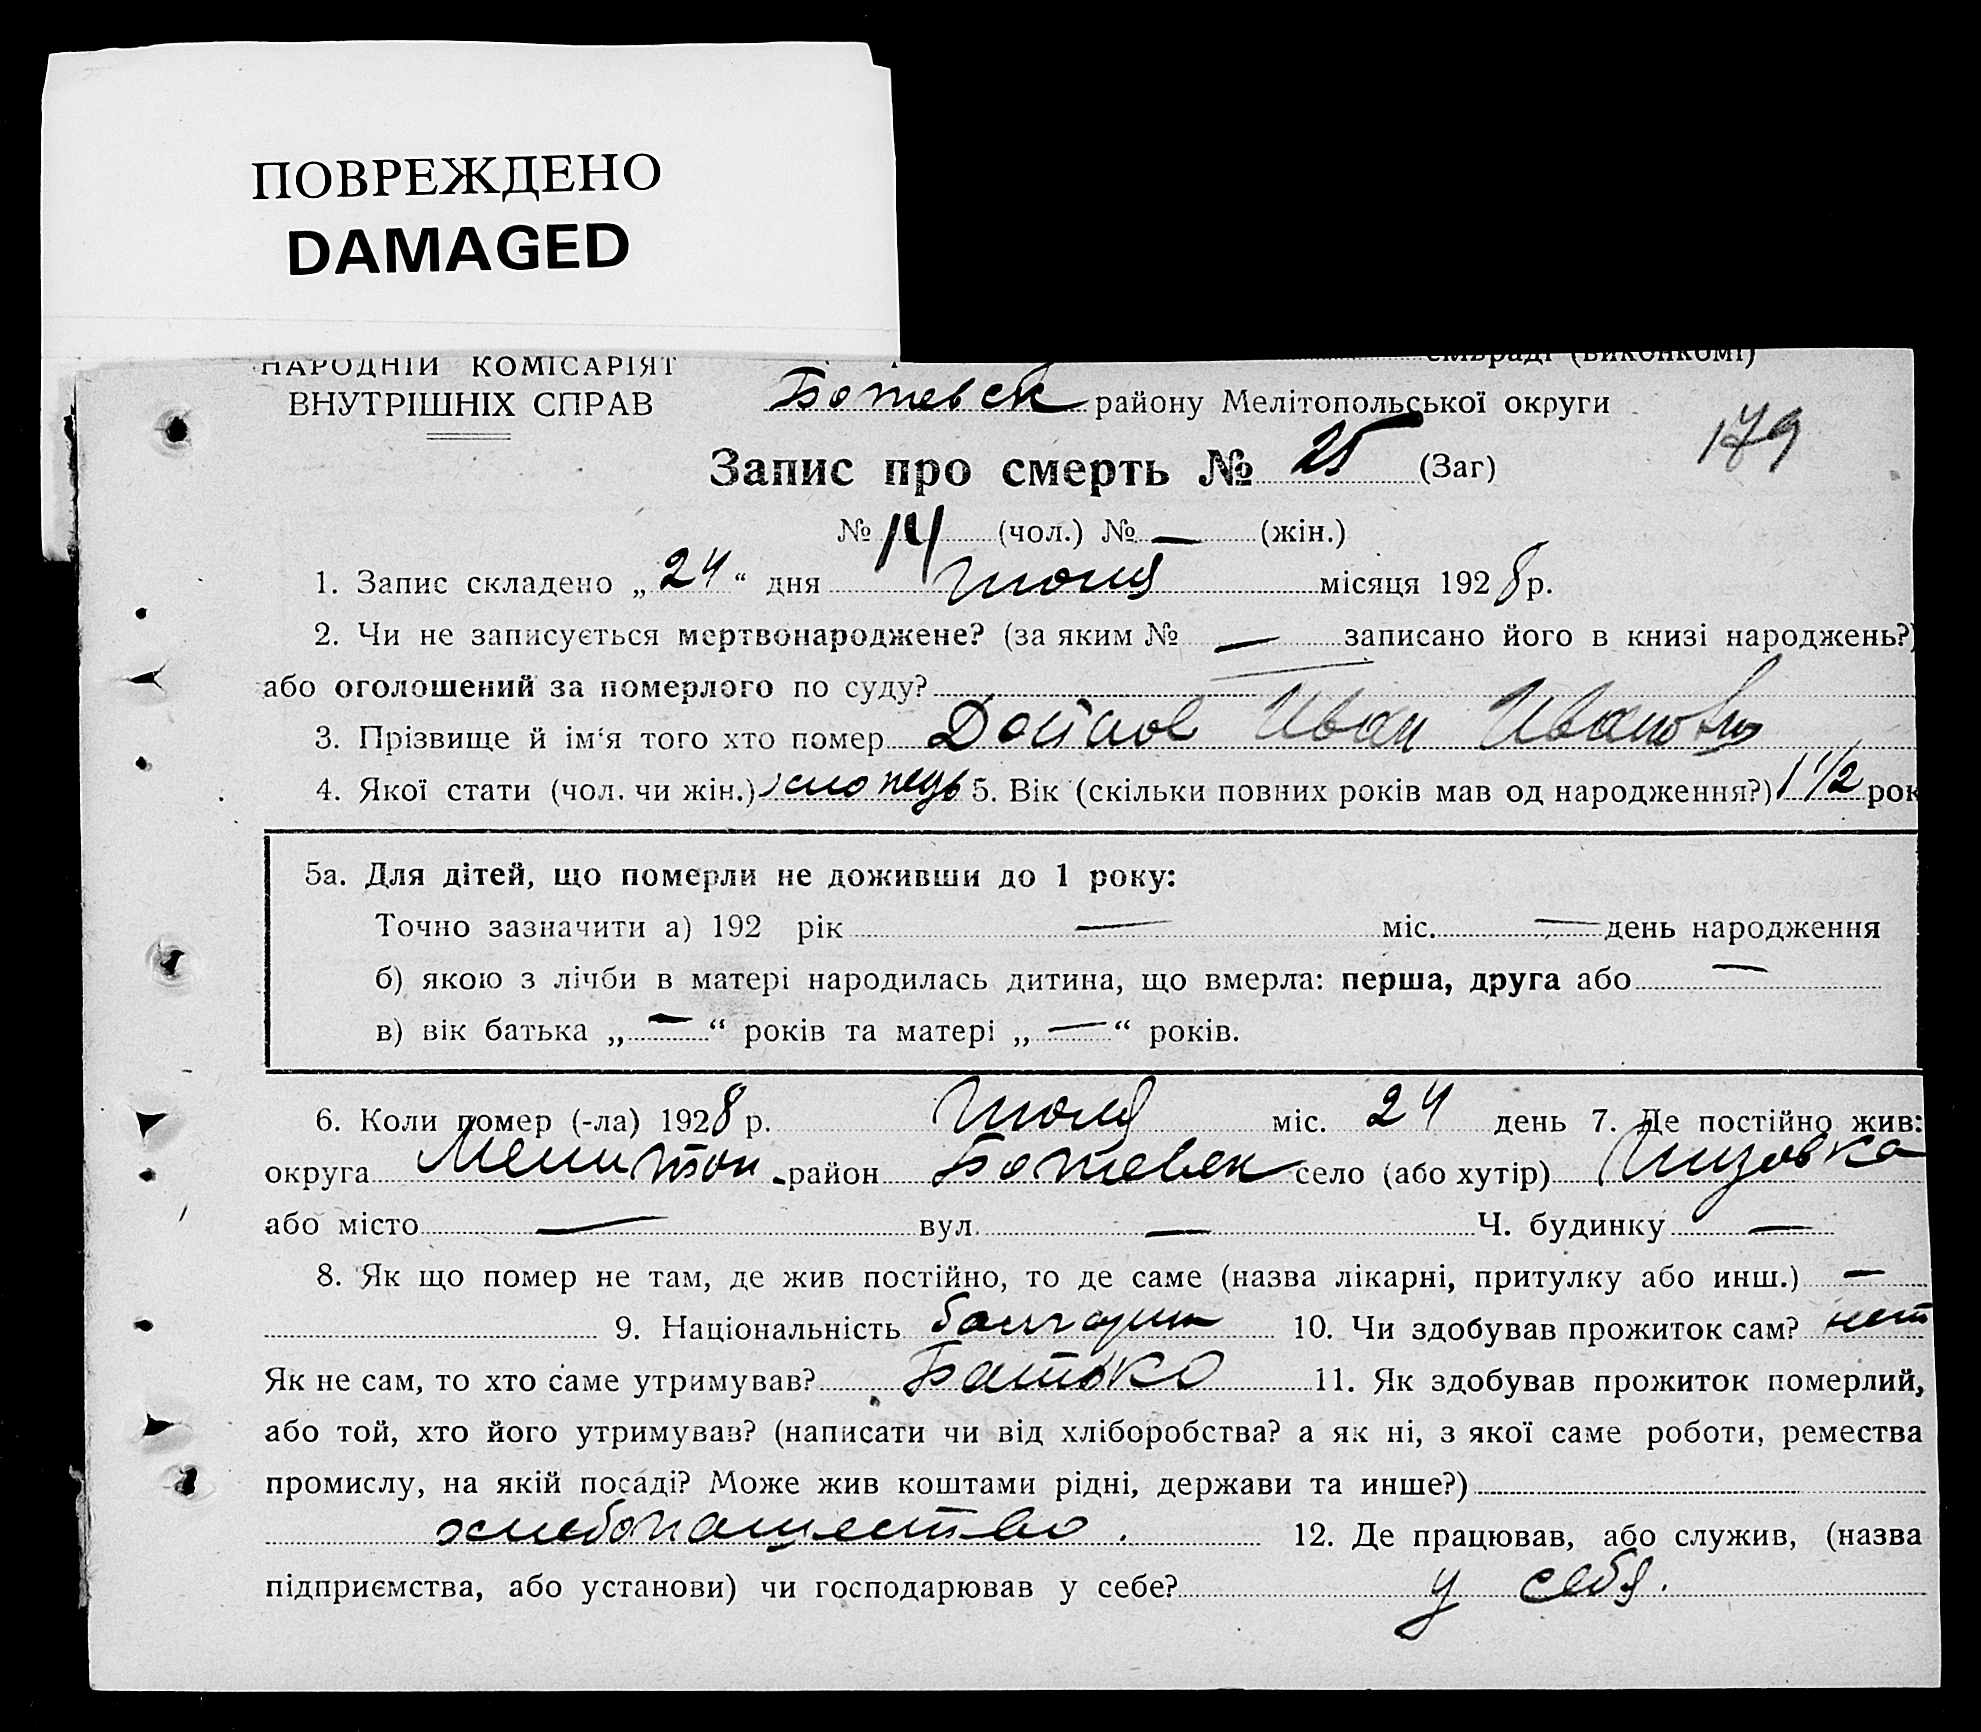 ПОВРЕЖДЕНО
DAMAGED
НАРОДНІЙ КОМІСАРІЯТ
сільраді (виконкомі)
ВНУТРІШНІХ СПРАВ
Ботевск району Мелітопольської округи
179
Запис про смерть № 25 (Заг)
№ 14 (чол.) № — (жін.)
1. Запис складено „24“ дня Июля місяця 1928 р.
2. Чи не записується мертвонароджене? (за яким № — записано його в книзі народжень?)
або оголошений за померлого по суду? —
3. Прізвище й ім‘я того хто помер Дойнов Иван Иванович
4. Якої стати (чол. чи жін.) хлопець 5. Вік (скільки повних років мав од народження?) 1 1/2 рок
5а. Для дітей, що померли не доживши до 1 року:
Точно зазначити а) 192 рік — міс. — день народження
б) якою з лічби в матері народилась дитина, що вмерла: перша, друга або —
в) вік батька „—“ років та матері „—“ років.
6. Коли помер (-ла) 1928 р. Июля міс. 24 день 7. Де постійно жив:
округа Мелитоп. район Ботевск село (або хутір)
або місто — вул. — Ч. будинку —
8. Як що помер не там, де жив постійно, то де саме (назва лікарні, притулку або инш.) —
9. Національність болгарин 10. Чи здобував прожиток сам? нет
Як не сам, то хто саме утримував? Батько 11. Як здобував прожиток померлий,
або той, хто його утримував? (написати чи від хліборобства? а як ні, з якої саме роботи, ремества
промислу, на якій посаді? Може жив коштами рідні, держави та инше?)
хлебопашество. 12. Де працював, або служив, (назва
підприємства, або установи) чи господарював у себе? у себя.